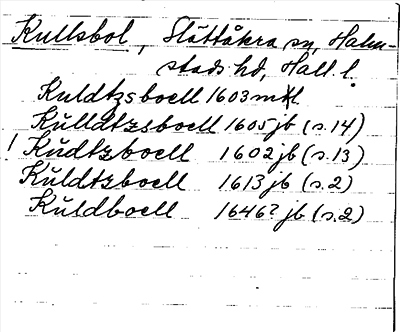 Kullsbol, Slättåkra sn, Halm-
stads hd, Hall. l.
Kuldtzsboell 1603 mtl
Kŭlldtzsboell 1605 jb (s. 14)
! Kŭdtzboell 1602 jb (s. 13)
Kŭldtzboell 1613 jb (s. 2)
Kŭldboell 1646? jb (s. 2)